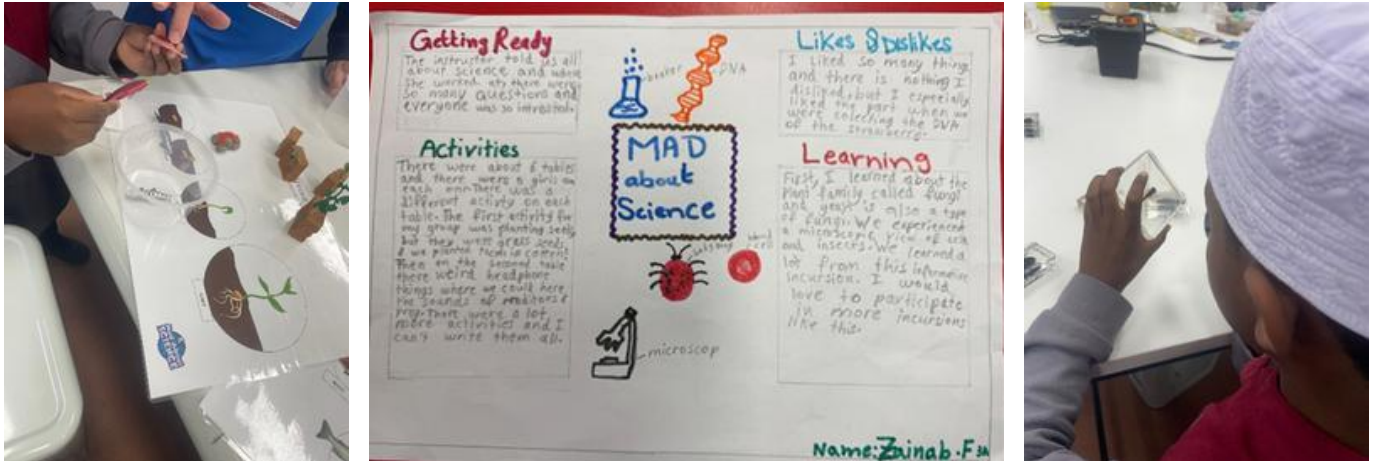 Getting Ready
The instructor told us all
about science and where
she worked at, there were
so many questions and
everyone was so intrested.
Activities
There were about 6 tables
and there were a girls on
each one. There was a
different activity on each
table. The first activity for
my group was planting seeds
but they were grass seeds,
& we planted them in
Then on the second table
there weird headphone
things where we could here
the sounds of &
prey. There were a lot
more activities and I
can't write them all.
DNA
MAD
about
Science
blood
cell
microscop
Likes & Dislikes
I liked so many things
and there is nothing I
disliked, but I especially
liked the part when we
were colecting the DNA
of the strawberry.
Learning
First, I learned about the
plant family called fungi
and yeast is also a type
of fungi. We experienced
a microscopic view of
and insects. We learned a
lot from this
incursion. I would
love to participate
in more incursions
like this.
Name: Zainab.F 3A
SCIENCE